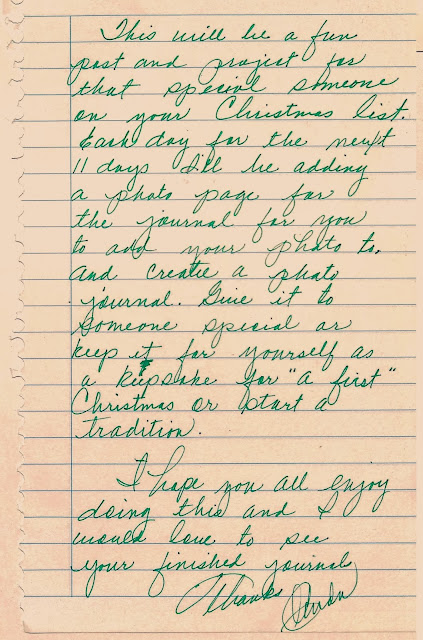 This will be a fun
post and project for
that special someone
on your Christmas list.
Each day for the next
11 days I'll be adding
a photo page for
the journal for you
to add your photo to.
and create a photo
journal. Give it to
someone special or
keep it for yourself as
a keepsake for "a first"
Christmas or start a
tradition.
I hope you all enjoy
doing this and I
would love to see
your finished journals
Thanks